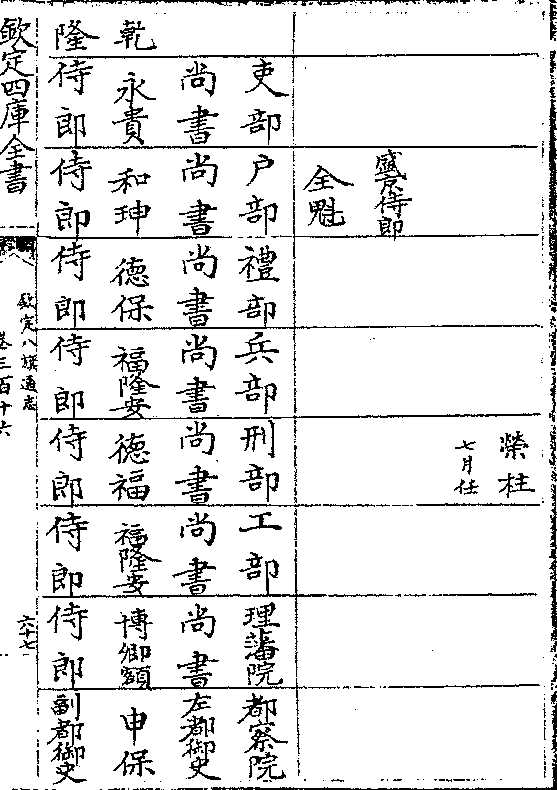 榮柱
七月任
盛京侍郎
全魁
吏部 户部 禮部 兵部 刑部 工部 理藩院 都察院
尚書 尚書 尚書 尚書 尚書 尚書 尚書 左都御史
乾 永貴 和珅 德保 福隆安 德福 福隆安 博卿額 申保
隆 侍郎 侍郎 侍郎 侍郎 侍郎 侍郎 侍郎 副都御史
欽定四庫全書
欽定八旗通志
卷三百十六
六十七